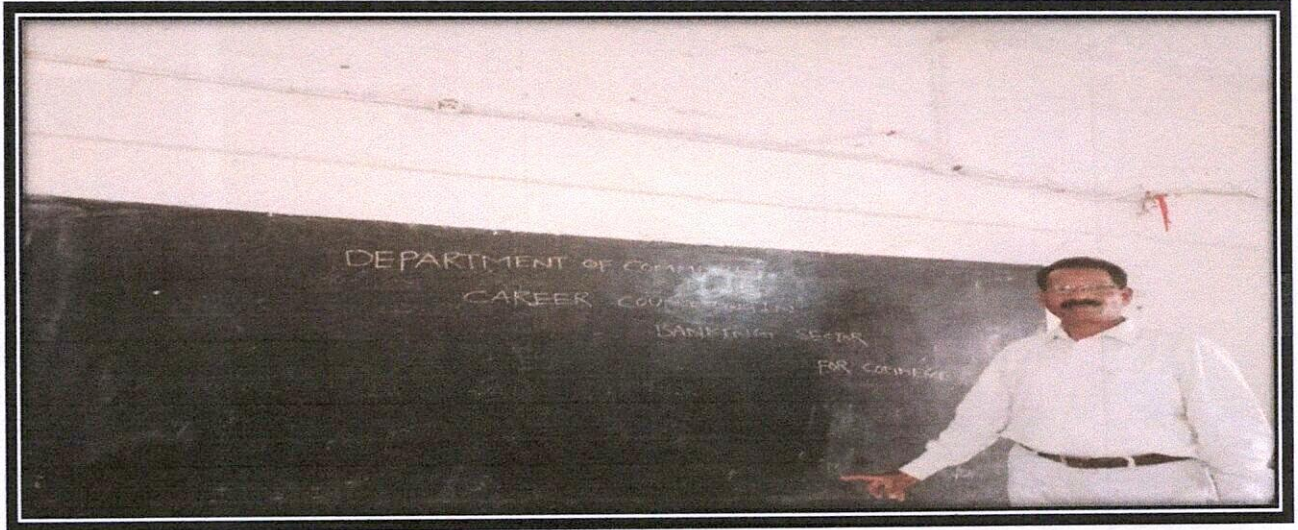 DEPARTMENT OF COMMERCE
CAREER
BANKING SECTOR
FOR COMMERCE